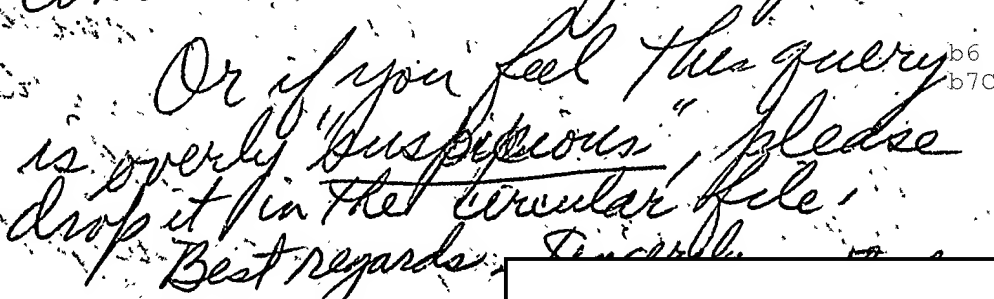 Or if you feel this query b6
b7C
is overly "suspicious", please
drop it in the circular file.
Best regards, Sincerely